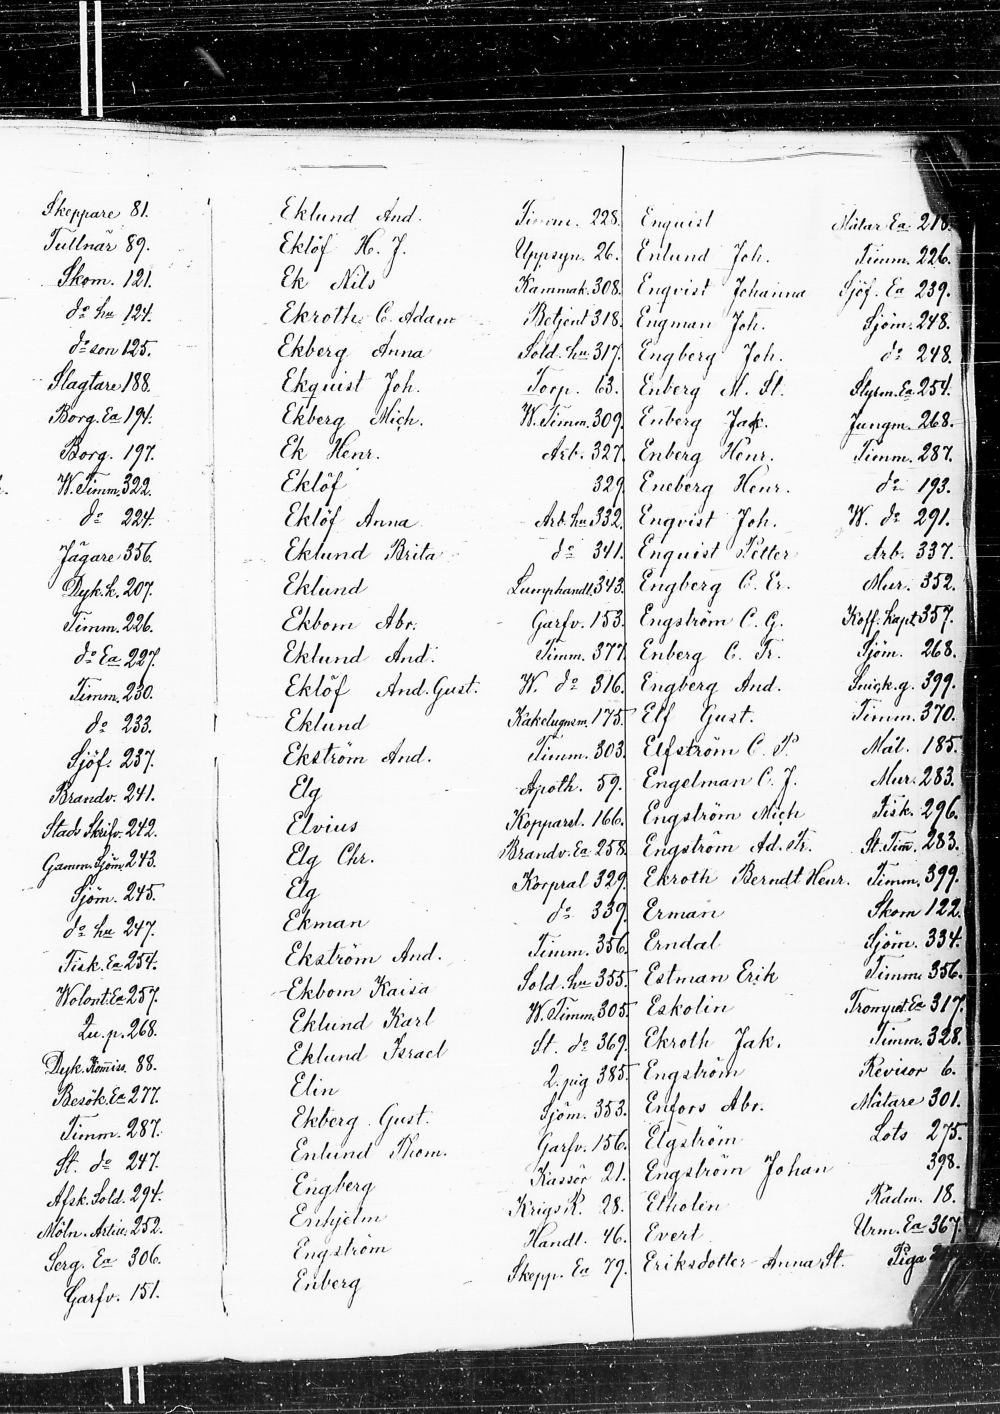 Skeppare 81.
Tullnär 89.
Skom. 121.
do hu 124.
do son 125.
Slagtare 188.
Borg. Ea 194.
Borg. 197.
W. Timm. 322.
do 224.
Jägare 356.
Dyk. k. 207.
Timm. 226.
do Ea 227.
Timm. 230.
do 233.
Sjöf. 237.
Brandv. 241.
Stads Skrifv. 242.
Gamm. Sjöm. 243.
Sjöm. 245.
do hu 247.
Fisk. Ea 254.
Wolont. Ea 257.
Qu. p. 268.
Dyk. Komiss. 88.
Besök. Ea 277.
Timm. 287.
St. do 247.
Afsk. Sold. 294.
Möln. 252.
Serg. Ea 306.
Garfv. 151.
Eklund And. Timm. 228.
Eklöf H. J. Uppsyn. 26.
Ek Nils Kammak. 308.
Ekroth C. Adam Betjent 318.
Ekberg Anna Sold. hu 317.
Ekquist Joh. Torp. 63.
Ekberg Mich. W. Timm. 309.
Ek Henr. Arb. 327.
Eklöf 329.
Eklöf Anna Arb. hu 332.
Eklund Brita do 341.
Eklund Lumphandl. 343.
Ekbom Abr. Garfv. 153.
Eklund And. Timm. 377.
Eklöf And. Gust. W. do 316.
Eklund Kakelugnsm. 175.
Ekström And. Timm. 303.
Elg Apoth. 59.
Elvius Kopparsl. 166.
Elg Chr. Brandv. Ea 258.
Elg Korpral 329.
Ekman do 339.
Ekström And. Timm. 356.
Ekbom Kaisa Sold. hu 355.
Eklund Karl W. Timm. 305.
Eklund Israel St. do 369.
Elin Q. pig 385.
Ekberg Gust. Sjöm. 353.
Enlund Thom. Garfv. 156.
Engberg Kassör 21.
Enhjelm Krigs R. 28.
Engström Handl. 46.
Enberg Skepp. Ea 79.
Enquist Mätar Ea 218.
Enlund Joh. Timm. 226.
Enqvist Johanna Sjöf. Ea 239.
Engman Joh. Sjöm. 248.
Engberg Joh. do 248.
Enberg M. St. Styrm. Ea 254.
Enberg Jak. Jungm. 268.
Enberg Henr. Timm. 287.
Eneberg Henr. do 193.
Enqvist Joh. W. do 291.
Enquist Petter Arb. 337.
Engberg C. Er. Mur. 352.
Engström C. G. Koff. kapt. 357.
Enberg C. Fr. Sjöm. 268.
Engberg And. Snick. g. 399.
Elf Gust. Timm. 370.
Elfström C. P. Mål. 185.
Engelman C. J. Mur. 283.
Engström Mich Fisk. 296.
Engström Ad. Fr. St. Tim. 283.
Ekroth Berndt Henr. Timm. 399.
Erman Skom 122.
Erndal Sjöm. 334.
Estman Erik Timm. 356.
Eskolin Trompet. Ea 317.
Ekroth Jak. Timm. 328.
Engström Revisor 6.
Enfors Abr. Mätare 301.
Elgström Lots 275.
Engström Johan 398.
Elholin Rådm. 18.
Evert Urm. Ea 367.
Eriksdotter Anna St. Piga